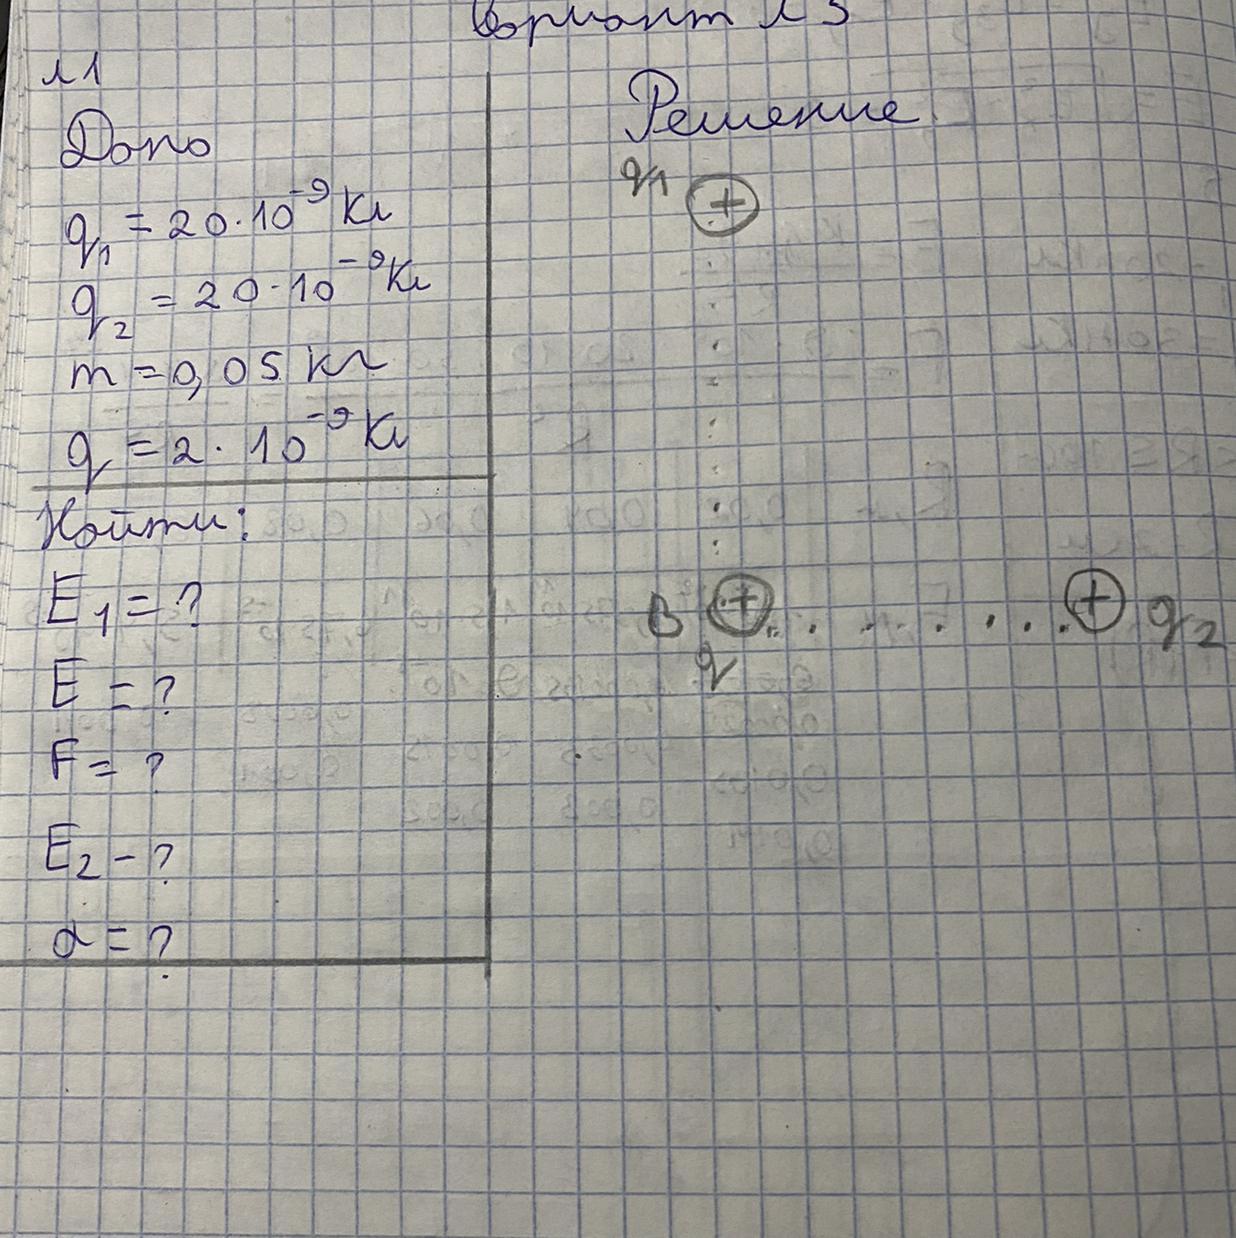 Вариант №3
№1
Дано
Решение
q₁ = 20·10⁻⁹ Кл
q₂ = 20·10⁻⁹ Кл
m = 0,05 кг
q = 2·10⁻⁹ Кл
Найти:
E₁ = ?
E = ?
F = ?
E₂ - ?
a = ?
q₁
+
B
+
+
q₂
q